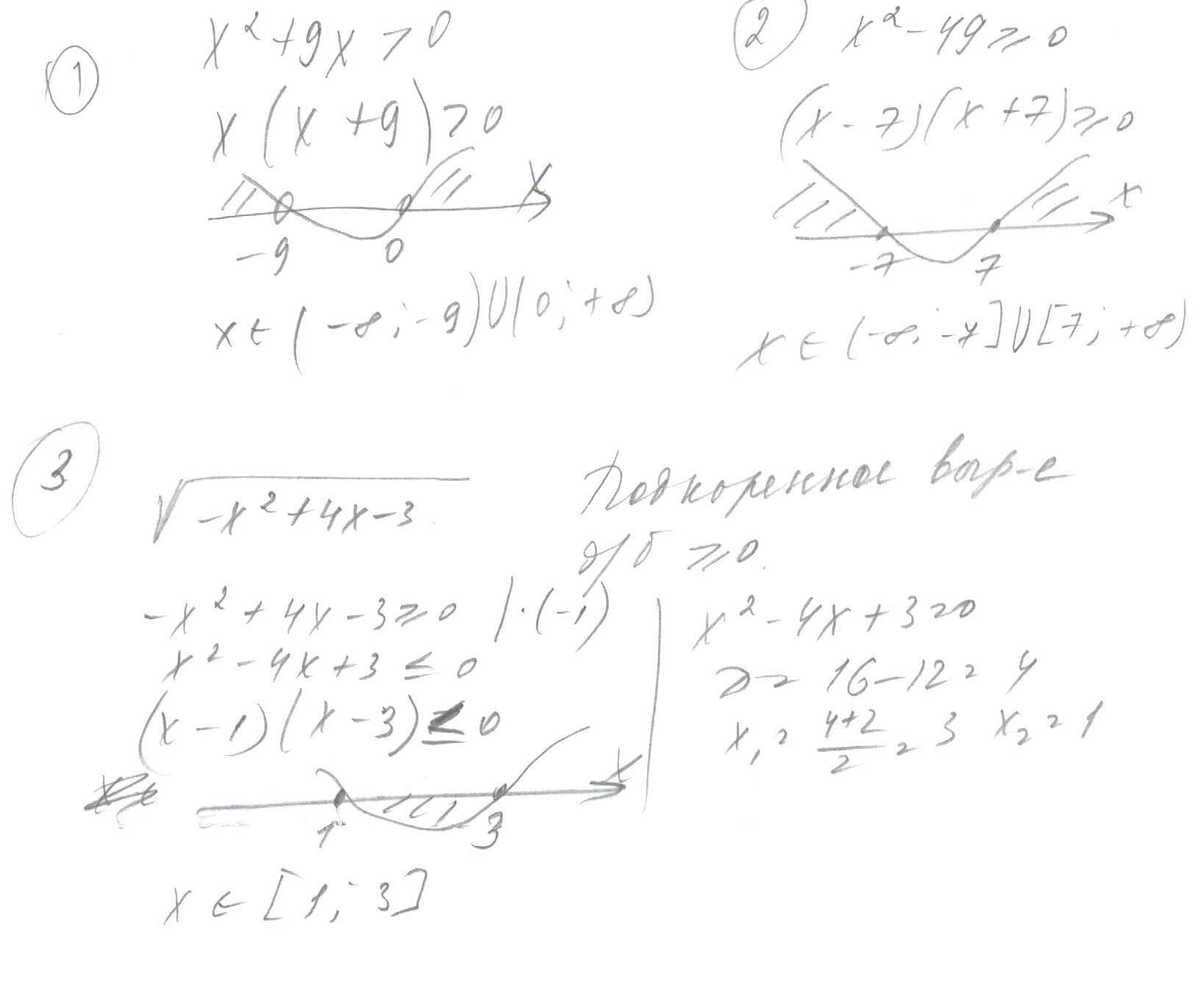 1
x² + 9x > 0
x (x + 9) > 0
x
-9 0
x ∈ (-∞; -9) U (0; +∞)
2
x² - 49 ⩾ 0
(x - 7)(x + 7) ⩾ 0
x
-7 7
x ∈ (-∞; -7] U [7; +∞)
3
√-x² + 4x - 3
Подкоренное выр-е
д/б ⩾ 0.
-x² + 4x - 3 ⩾ 0 | · (-1)
x² - 4x + 3 ≤ 0
(x - 1)(x - 3) ≤ 0
x
1 3
x ∈ [1; 3]
x² - 4x + 3 = 0
D = 16 - 12 = 4
x₁ = (4+2)/2 = 3 x₂ = 1